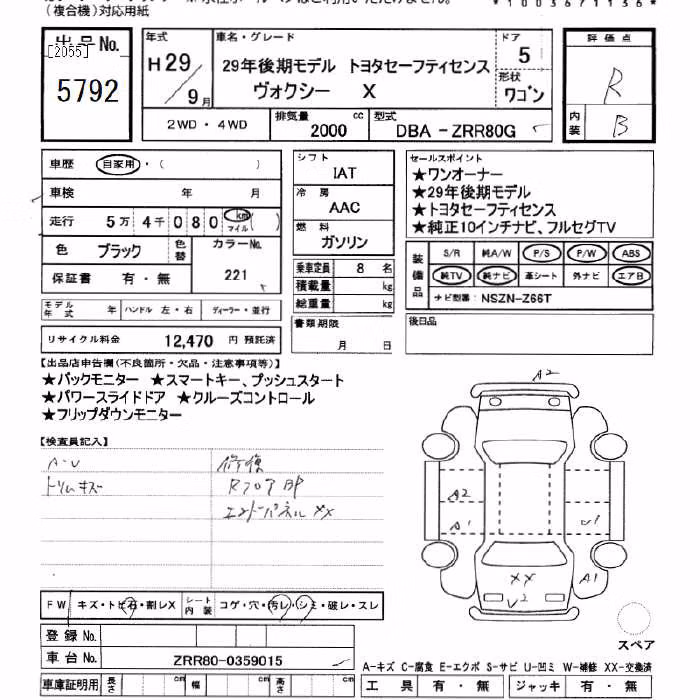 (複合機)対応用紙
*1003671136*
出品No.
[2055]
5792
年式
H29/9月
車名・グレード
29年後期モデル トヨタセーフティセンス
ヴォクシー X
ドア
5
形状
ワゴン
評価点
R
内装
B
2WD・4WD
排気量 2000 cc
型式 DBA-ZRR80G
車歴 自家用・( )
車検 年 月
走行 5万4千080 km マイル ( )
色 ブラック 色替 カラーNo. 221
保証書 有・無
モデル年式 年 ハンドル 左・右 ディーラー・並行
リサイクル料金 12,470 円 預託済
シフト
IAT
冷房
AAC
燃料
ガソリン
乗車定員 8 名
積載量 kg
総重量 kg
書類期限
月 日
セールスポイント
★ワンオーナー
★29年後期モデル
★トヨタセーフティセンス
★純正10インチナビ、フルセグTV
装備品
S/R 純A/W P/S P/W ABS
純TV 純ナビ 革シート 外ナビ エアB
ナビ型番: NSZN-Z66T
後日品
【出品店申告欄(不良箇所・欠品・注意事項等)】
★バックモニター ★スマートキー、プッシュスタート
★パワースライドドア ★クルーズコントロール
★フリップダウンモニター
【検査員記入】
A-U
トリムキズ
修復
RフロアBP
エンドパネルXX
A2
A2
A1
U1
A1
XX
U2
スペア
FW キズ・トビ石・割レX シート内装 コゲ・穴・汚レ・シミ・破レ・スレ
登録No.
車台No. ZRR80-0359015
車庫証明用 長さ cm 幅 cm 高さ cm
A-キズ C-腐食 E-エクボ S-サビ U-凹ミ W-補修 XX-交換済
工具 有・無 ジャッキ 有・無